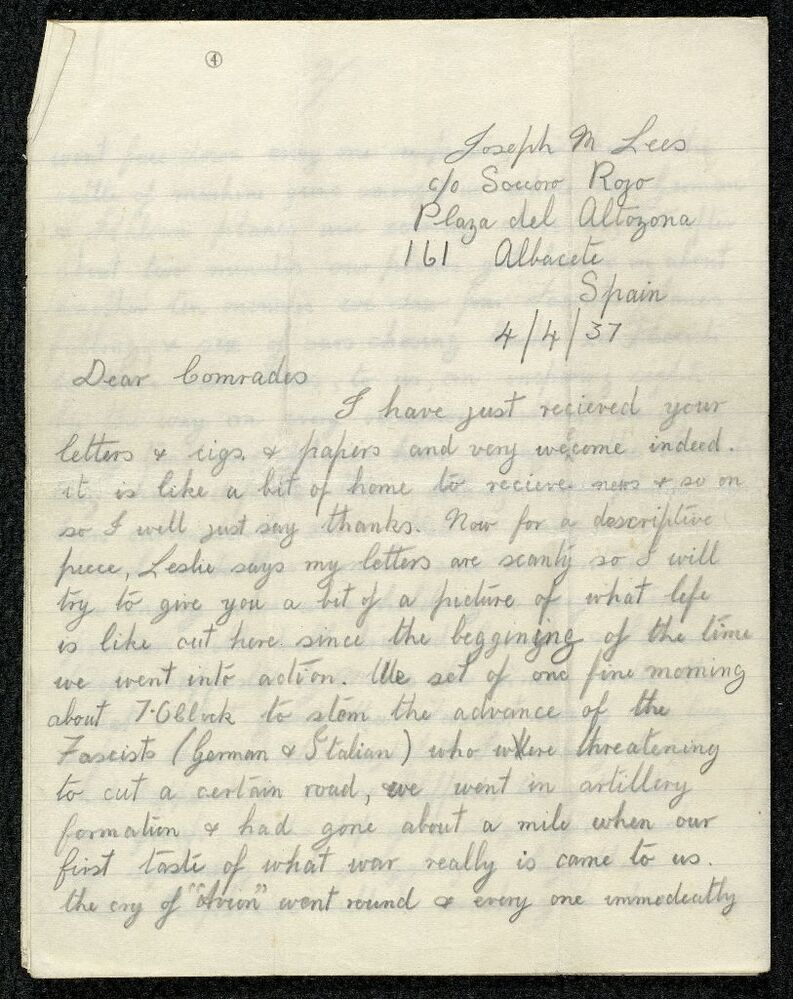 4
Joseph M Lees
c/o Soccoro Rojo
Plaza del Altozona
161 Albacete
Spain
4/4/37
Dear Comrades
I have just recieved your
letters & cigs. & papers and very welcome indeed.
it is like a bit of home to recieve news & so on
so I will just say thanks. Now for a descriptive
piece, Leslie says my letters are scanty so I will
try to give you a bit of a picture of what life
is like out here since the beggenging of the time
we went into action. We set of one fine morning
about 7.Oclock to stem the advance of the
Fascists (German & Italian) who were threatening
to cut a certain road, we went in artillery
formation & had gone about a mile when our
first taste of what war really is came to us.
the cry of "Avion" went round & every one immedeatly